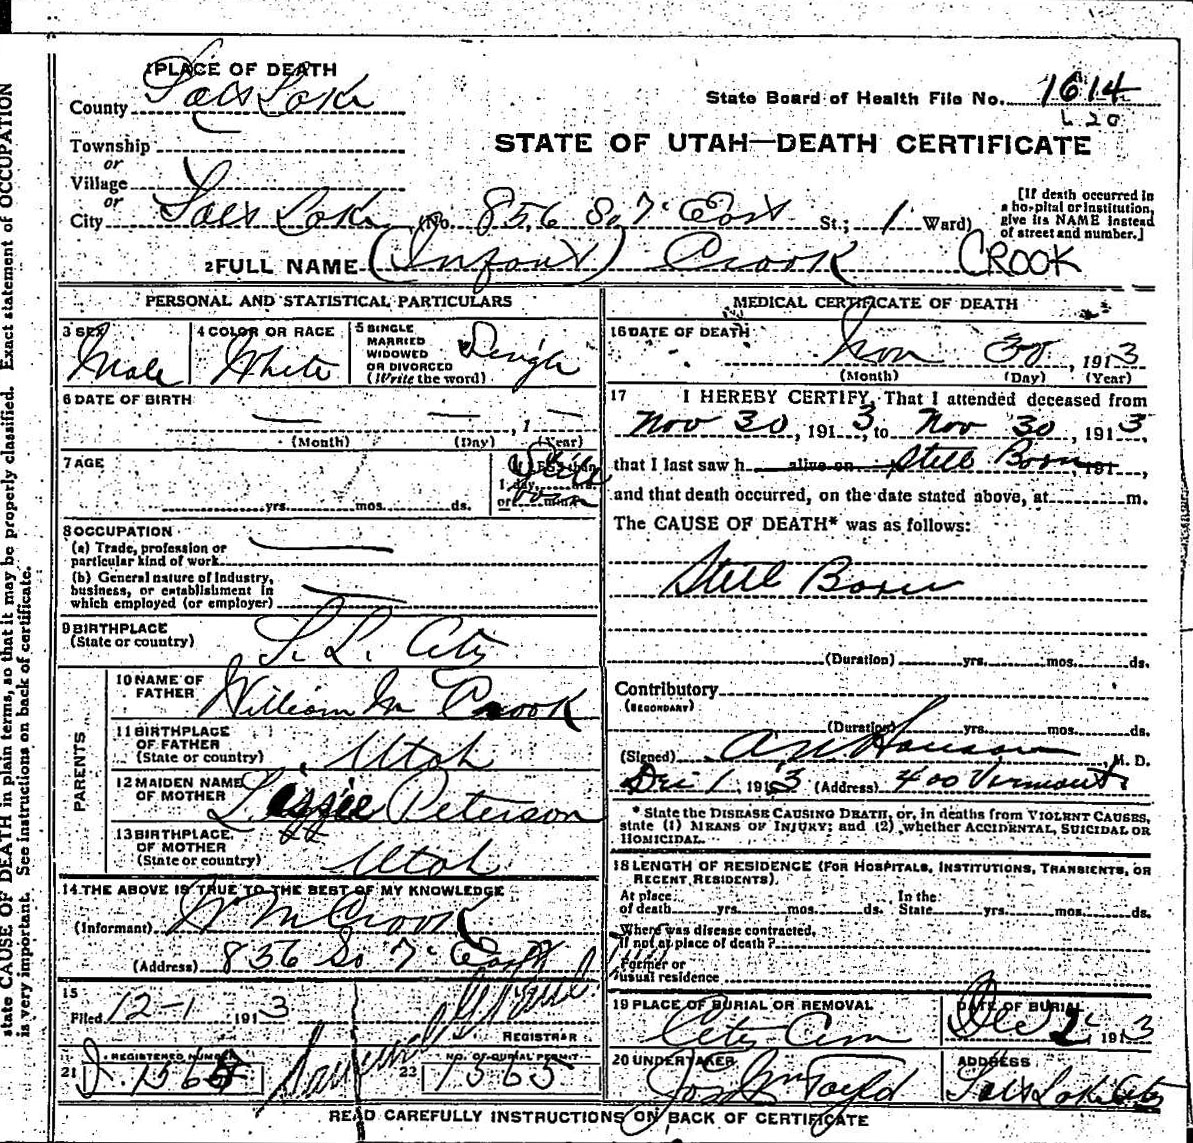 1 PLACE OF DEATH
County Salt Lake
State Board of Health File No. 1614
Township
or
STATE OF UTAH—DEATH CERTIFICATE
Village
or
City Salt Lake (No. 856 So 7th East St.; 1 Ward)
[If death occurred in
a hospital or institution,
give its NAME instead
of street and number.]
2 FULL NAME (Infant) Crook CROOK
PERSONAL AND STATISTICAL PARTICULARS
3 SEX Male
4 COLOR OR RACE White
5 SINGLE
MARRIED
WIDOWED
OR DIVORCED
(Write the word) Single
6 DATE OF BIRTH
(Month) (Day) , 1 (Year)
7 AGE
yrs. mos. ds.
Still
born
8 OCCUPATION
(a) Trade, profession or
particular kind of work
(b) General nature of industry,
business, or establishment in
which employed (or employer)
9 BIRTHPLACE
(State or country) S. L. City
PARENTS
10 NAME OF
FATHER William M Crook
11 BIRTHPLACE
OF FATHER
(State or country) Utah
12 MAIDEN NAME
OF MOTHER Peterson
13 BIRTHPLACE
OF MOTHER
(State or country) Utah
14 THE ABOVE IS TRUE TO THE BEST OF MY KNOWLEDGE
(Informant) Wm M Crook
(Address) 836 So 7th East
15
Filed 12-1 1913
REGISTRAR
21 REGISTERED NUMBER
22 NO. OF BURIAL PERMIT
1565
MEDICAL CERTIFICATE OF DEATH
16 DATE OF DEATH
Nov 30, 1913
(Month) (Day) (Year)
17 I HEREBY CERTIFY, That I attended deceased from
Nov 30, 1913, to Nov 30, 1913,
that I last saw h alive on Still Born 191 ,
and that death occurred, on the date stated above, at m.
The CAUSE OF DEATH* was as follows:
Still Born
(Duration) yrs. mos. ds.
Contributory
(SECONDARY)
(Duration) yrs. mos. ds.
(Signed) M. D.
Dec 1, 1913 (Address) 400 Vermont
* State the DISEASE CAUSING DEATH, or, in deaths from VIOLENT CAUSES,
state (1) MEANS OF INJURY; and (2) whether ACCIDENTAL, SUICIDAL OR
HOMICIDAL.
18 LENGTH OF RESIDENCE (FOR HOSPITALS, INSTITUTIONS, TRANSIENTS, OR
RECENT RESIDENTS).
At place In the
of death yrs. mos. ds. State yrs. mos. ds.
Where was disease contracted,
if not at place of death?
Former or
usual residence
19 PLACE OF BURIAL OR REMOVAL
City Cem
DATE OF BURIAL
Dec 2 1913
20 UNDERTAKER
Jos Wm Taylor
ADDRESS
Salt Lake City
READ CAREFULLY INSTRUCTIONS ON BACK OF CERTIFICATE
state CAUSE OF DEATH in plain terms, so that it may be properly classified. Exact statement of OCCUPATION
is very important. See instructions on back of certificate.